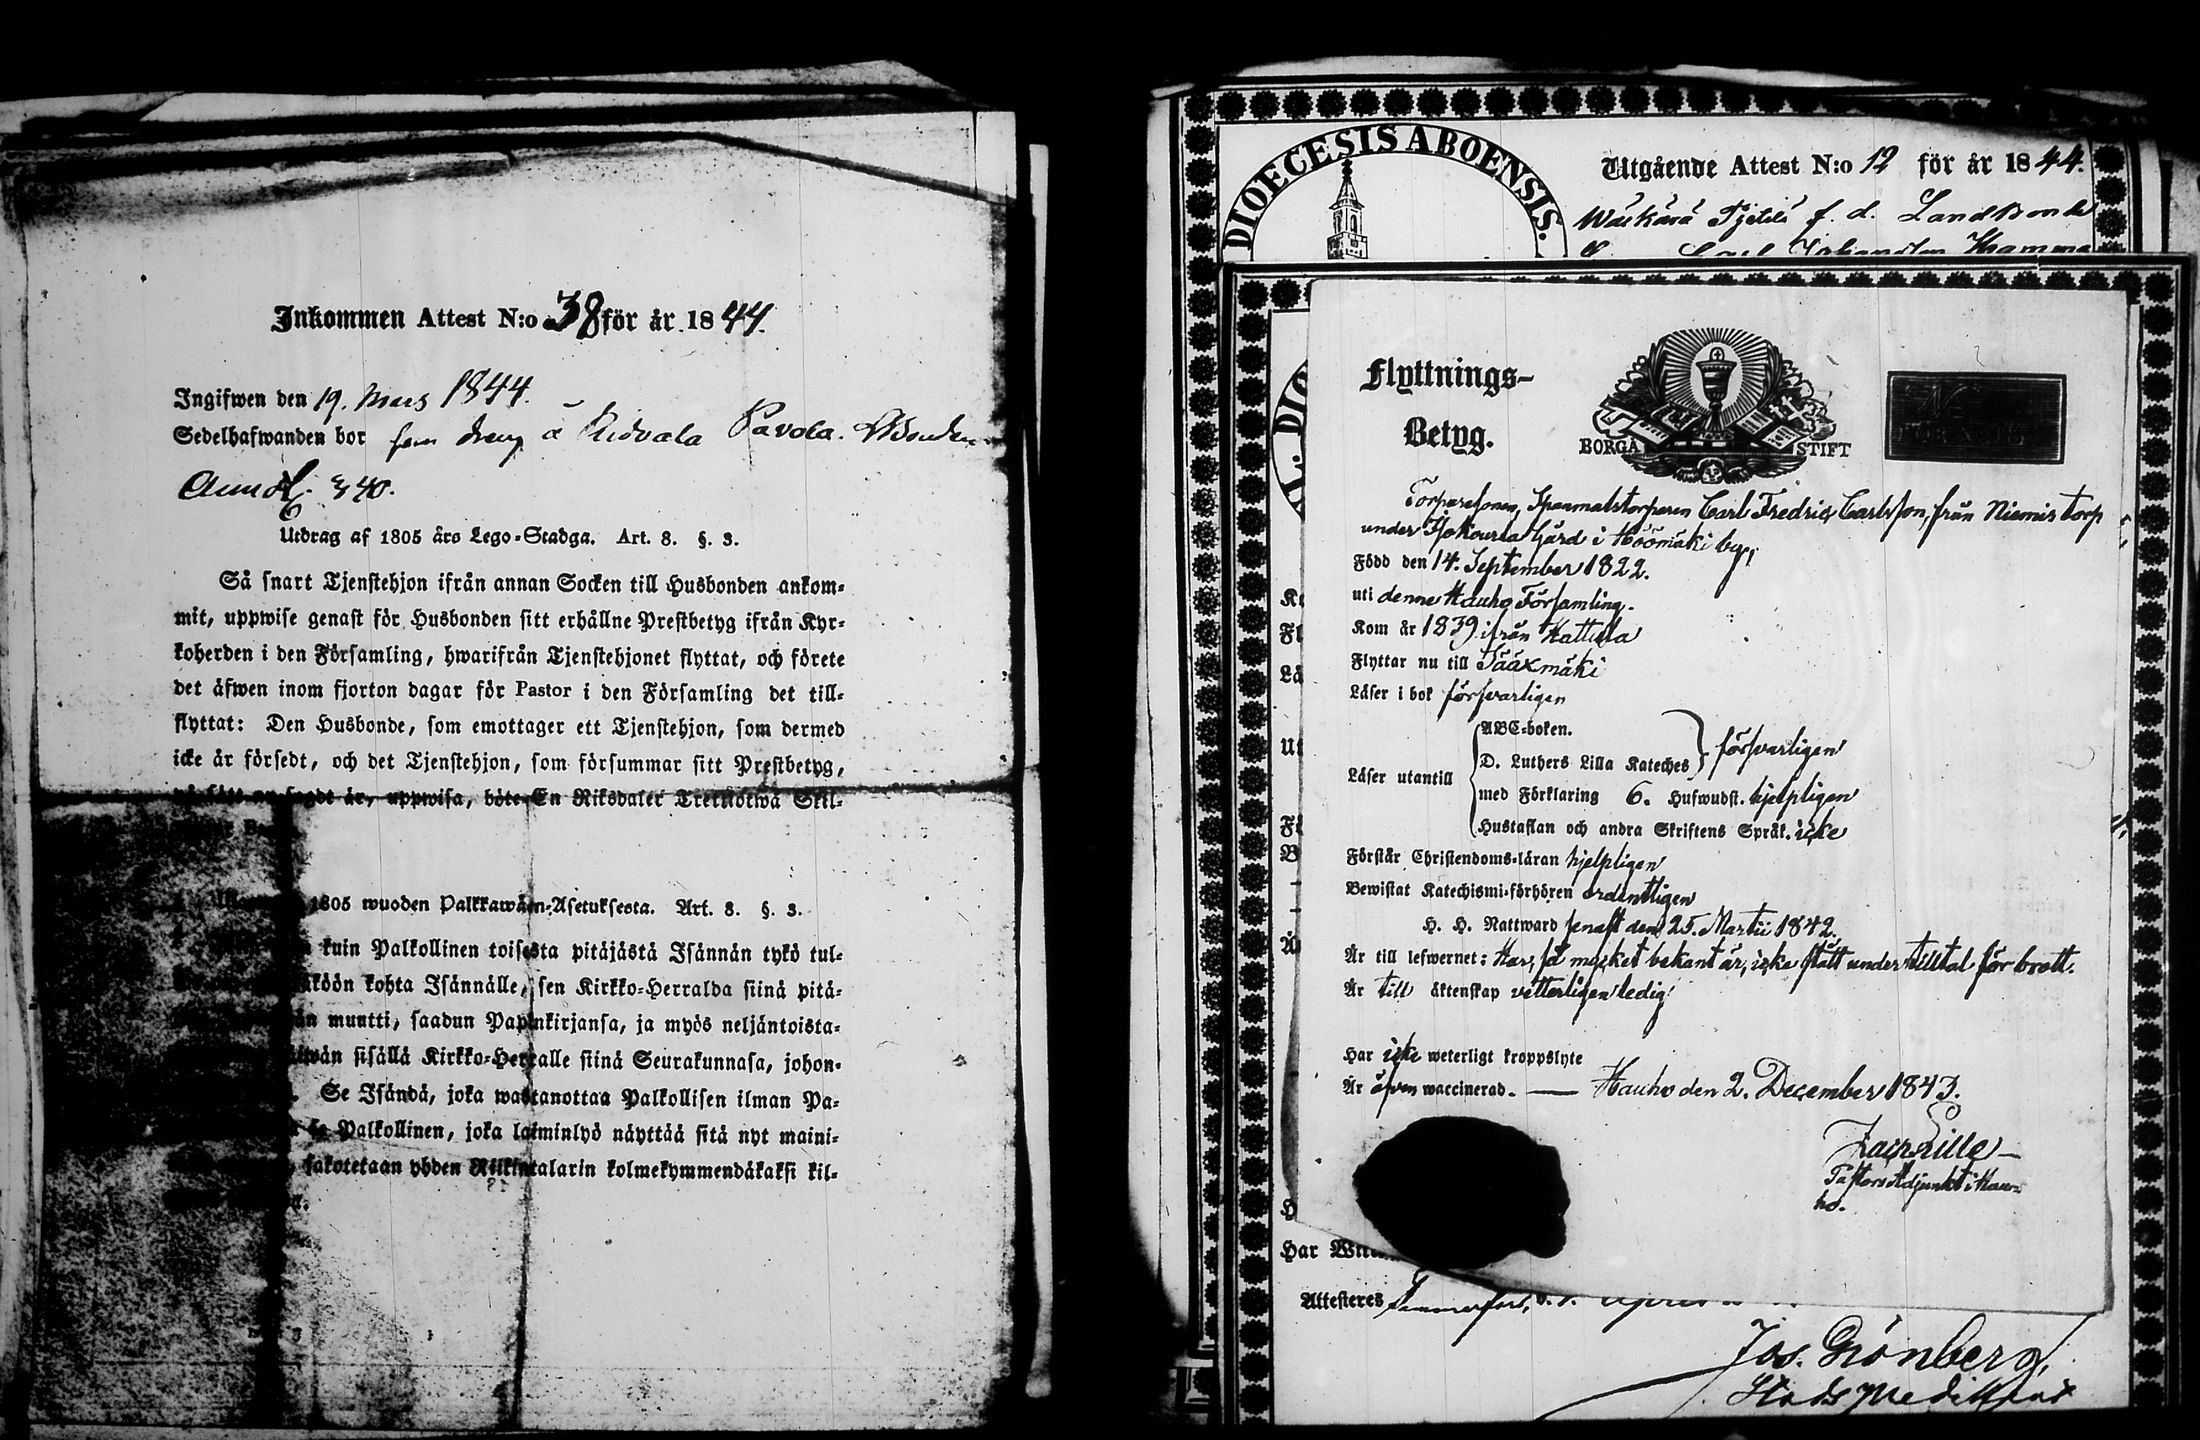 Inkommen Attest N:o 38 för år 1844.
Ingifwen den 19. Mars 1844.
Sedelhafwanden bor som dreng å Ridvala Pavola.
340.
Utdrag af 1805 års Lego-Stadga. Art. 8. §. 3.
Så snart Tjenstehjon ifrån annan Socken till Husbonden ankom-
mit, uppwise genast för Husbonden sitt erhållne Prestbetyg ifrån Kyr-
koherden i den Församling, hwarifrån Tjenstehjonet flyttat, och förete
det äfwen inom fjorton dagar för Pastor i den Församling det till-
flyttat: Den Husbonde, som emottager ett Tjenstehjon, som dermed
icke är försedt, och det Tjenstehjon, som försummar sitt Prestbetyg,
på sätt nu sagdt är, uppwisa, böte En Riksdaler Trettiotwå Skil-
1805 wuoden Palkkawäen-Asetuksesta. Art. 8. §. 3.
kuin Palkollinen toisesta pitäjästä Isännän tykö tul-
köön kohta Isännälle, sen Kirkko-Herralda siinä pitä-
än muutti, saadun Papinkirjansa, ja myös neljäntoista-
äiwän sisällä Kirkko-Herralle siinä Seurakunnasa, johon-
Se Isändä, joka wastanottaa Palkollisen ilman Pa-
se Palkollinen, joka laiminlyö näyttää sitä nyt maini-
sakotetaan yhden Riikintalarin kolmekymmendäkaksi kil-
DIOECESIS ABOENSIS.
Utgående Attest N:o 12 för år 1844.
f. d. Landbonde
Flyttnings-
Betyg.
BORGÅ STIFT
Torparesonen, Spanmalstorparen Carl Fredric Carlsson, från Niemis torp
under Hjokourla Gård i Höömäki by,
Född den 14. September 1822.
uti denne Hauho Församling.
Kom år 1839 ifrån Hattula
Flyttar nu till Sääxmäki
Läser i bok försvarligen
Läser utantill
ABC-boken.
D. Luthers Lilla Kateches försvarligen
med Förklaring 6. Hufwudst. hjelpligen
Hustaflan och andra Skriftens Språk. icke
Förstår Christendoms-läran hjelpligen
Bewistat Katechismi-förhören ordentligen
H. H. Nattward senast den 25. Martii 1842.
Är till lefwernet: Har, så mycket bekant är, icke stått under tilltal för brott.
Är till äktenskap vetterligen ledig.
Har icke weterligt kroppslyte
Är äfven waccinerad. — Hauho den 2. December 1843.
Lille
Pastors Adjunkt i Hau-
ho.
Attesteres Tammerfors,
Jos. Grönberg,